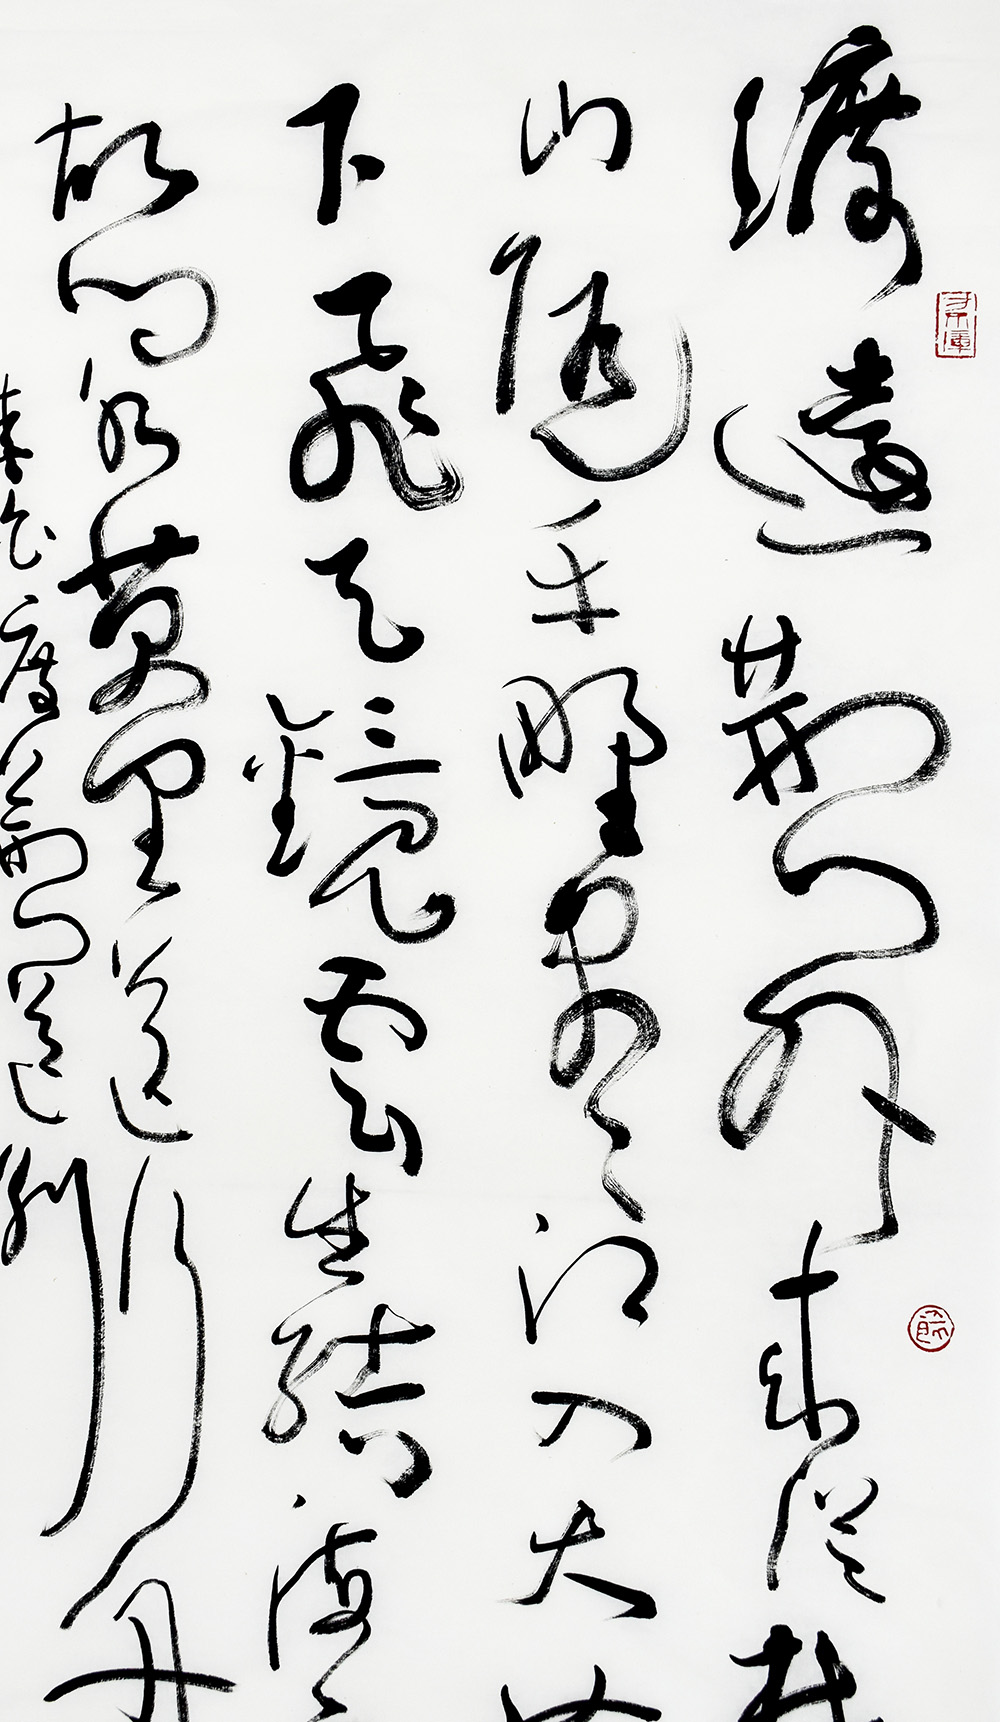 渡遠荊門外來從
山隨平野盡江入大
下飛天鏡雲生結海
故鄉水萬里送行舟
李白度荊門送別